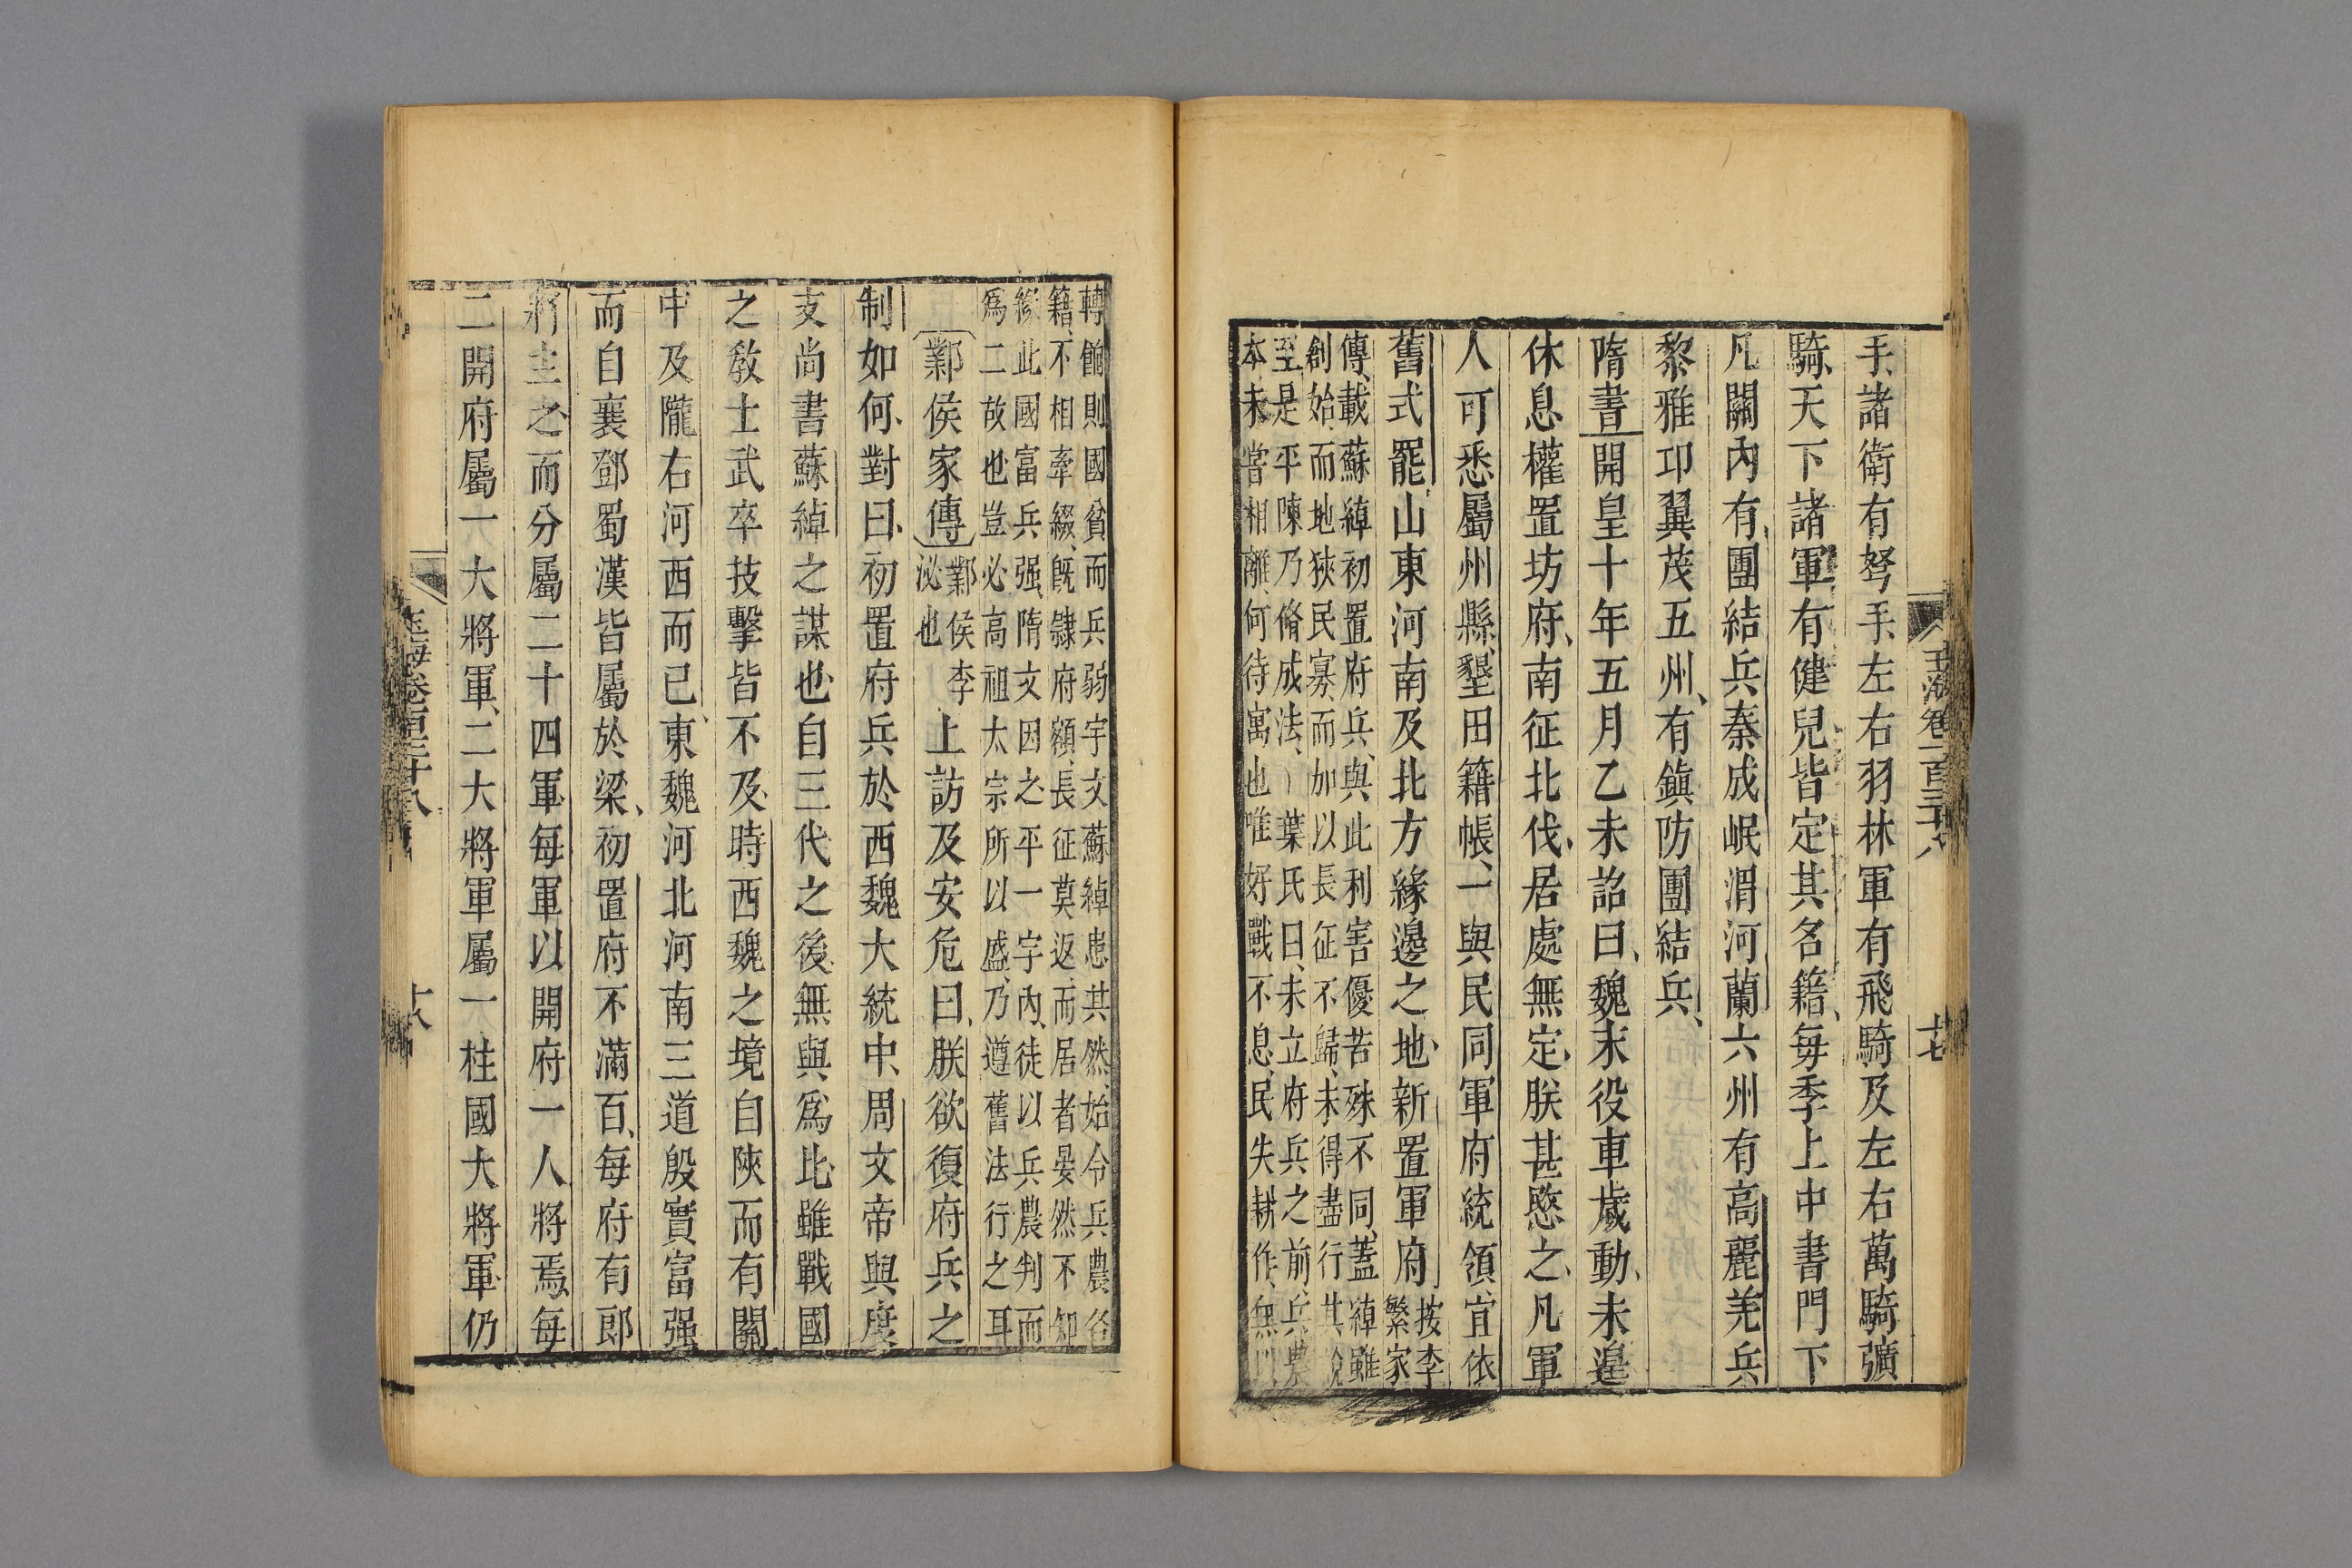 手諸衛有弩手左右羽林軍有飛騎及左右萬騎彍
騎天下諸軍有健兒皆定其名籍每季上中書門下
凡關內有團結兵秦成岷渭河蘭六州有高麗羌兵
黎雅卭翼茂五州有鎮防團結兵
隋書開皇十年五月乙未詔曰魏末役車歲動未遑
休息權置坊府南征北伐居處無定朕甚愍之凡軍
人可悉屬州縣墾田籍帳一與民同軍府統領宜依
舊式罷山東河南及北方緣邊之地新置軍府按李繁家
傳載蘇綽初置府兵與此利害優苦殊不同蓋綽雖
創始而地狹民寡而加以長征不歸未得盡行其說
至是平陳乃脩成法葉氏曰未立府兵之前兵農
本未嘗相離何待寓也唯好戰不息民失耕作無以
玉海卷一百三十八
十七
轉餉則國貧而兵弱宇文蘇綽患其然始令兵農各
籍不相牽綴旣隸府額長征莫返而居者晏然不知
緣此國富兵强隋文因之平一宇內徒以兵農判而
為二故也豈必高祖太宗所以盛乃遵舊法行之耳
鄴侯家傳鄴侯李泌也上訪及安危曰朕欲復府兵之
制如何對曰初置府兵於西魏大統中周文帝與度
支尚書蘇綽之謀也自三代之後無與為比雖戰國
之敎士武卒技擊皆不及時西魏之境自陝而有關
中及隴右河西而已東魏河北河南三道殷實富强
而自襄鄧蜀漢皆屬於梁初置府不滿百每府有郎
將主之而分屬二十四軍每軍以開府一人將焉每
二開府屬一大將軍二大將軍屬一柱國大將軍仍
玉海卷一百三十八
十八